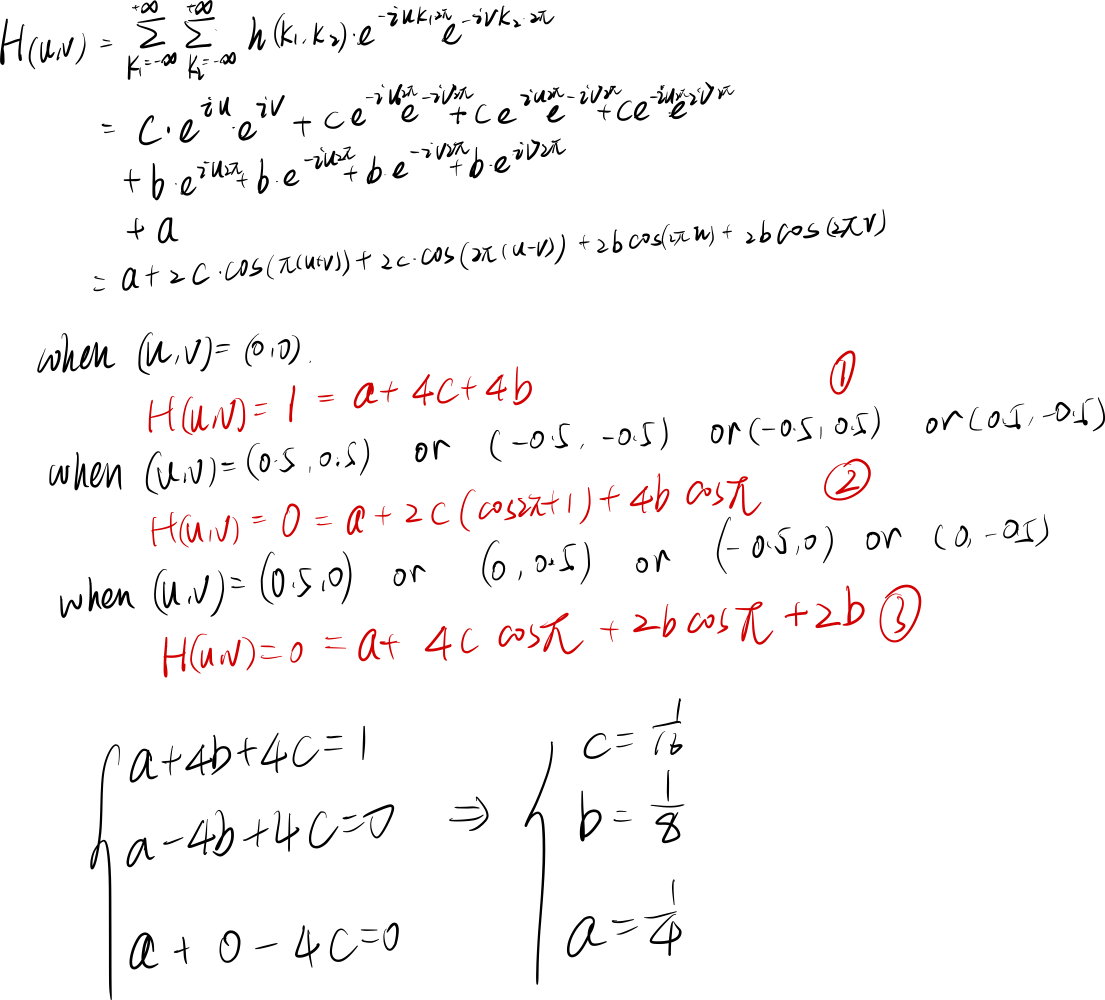 H(u,v) = \sum_{K_1=-\infty}^{+\infty} \sum_{K_2=-\infty}^{+\infty} h(K_1, K_2) · e^{-iuK_1 2π} e^{-ivK_2·2π}
= C·e^{iu}·e^{iv} + ce^{-iu2π}e^{-iv2π} + ce^{iu2π}e^{-iv2π} + ce^{-iu2π}e^{iv2π}
+ b·e^{iu2π} + b·e^{-iu2π} + b·e^{-iv2π} + b·e^{iv2π}
+ a
= a + 2C·cos(π(u+v)) + 2C·cos(2π(u-v)) + 2b cos(2πu) + 2b cos(2πv)
when (u,v) = (0,0).
H(u,v) = 1 = a + 4C + 4b ①
when (u,v) = (0.5, 0.5) or (-0.5, -0.5) or (-0.5, 0.5) or (0.5, -0.5)
H(u,v) = 0 = a + 2C(cos2π+1) + 4b cosπ ②
when (u,v) = (0.5, 0) or (0, 0.5) or (-0.5, 0) or (0, -0.5)
H(u,v) = 0 = a + 4C cosπ + 2b cosπ + 2b ③
a + 4b + 4C = 1 c = 1/16
a - 4b + 4C = 0 ⇒ b = 1/8
a + 0 - 4C = 0 a = 1/4